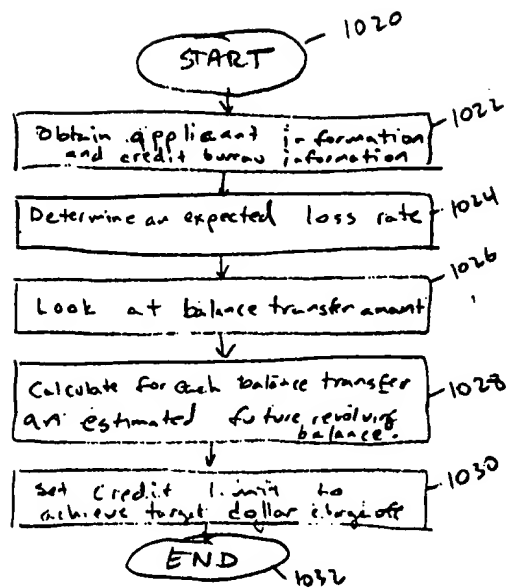 1020
START
1022
Obtain applicant information
and credit bureau information
1024
Determine an expected loss rate
1026
Look at balance transfer amount
1028
Calculate for each balance transfer
an estimated future revolving
balance.
1030
Set Credit limit to
achieve target dollar chargeoff
END
1032